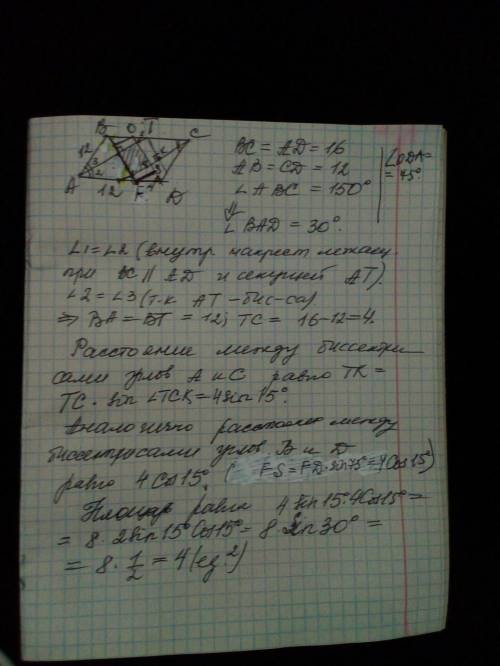 B O T C
12
A 12 F D
BC = AD = 16
AB = CD = 12
∠ABC = 150°
⇓
∠BAD = 30°.
∠ODA =
= 75°
∠1 = ∠2 (внутр. накрест лежащ.
при BC || AD и секущей AT).
∠2 = ∠3 (т.к. AT – бис-са)
⇒ BA = BT = 12; TC = 16-12=4.
Расстояние между биссектри
сами углов A и C равно TK =
TC · sin ∠TCK = 4sin 15°.
Аналогично расстояние между
биссектрисами углов B и D
равно 4 Cos 15°. (FS = FD · sin 75° = 4 Cos 15°)
Площадь равна 4 sin 15° · 4 Cos 15° =
= 8 · 2 sin 15° Cos 15° = 8 · Sin 30° =
= 8 · 1/2 = 4 (ед.²)